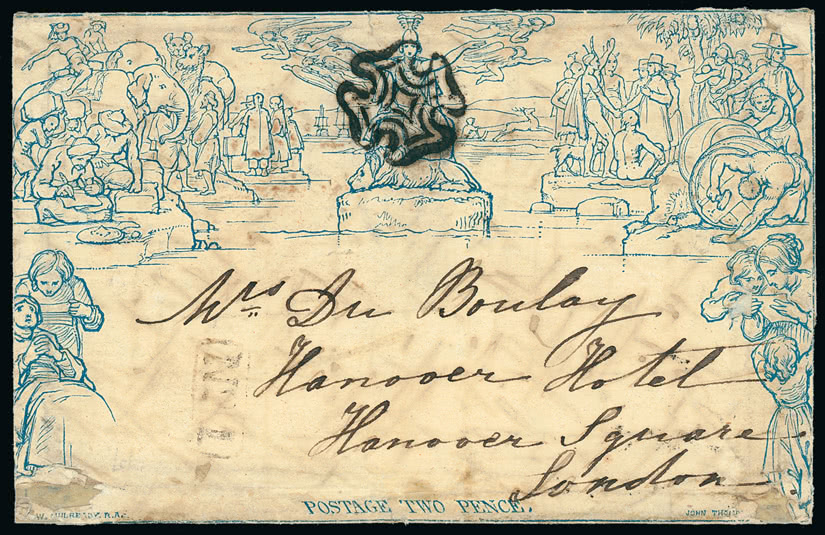 Mrs Du Boulay
Hanover Hotel
Hanover Square
London
POSTAGE TWO PENCE.
W. MULREADY. R.A.
JOHN THOM